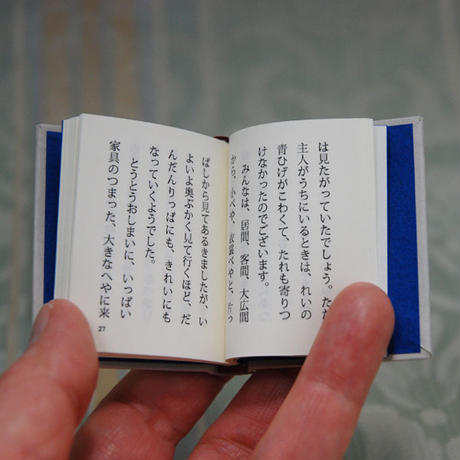 は見たがっていたでしょう。ただ
主人がうちにいるときは、れいの
青ひげがこわくて、たれも寄りつ
けなかったのでございます。
みんなは、居間、客間、大広間
から、小べや、衣裳べやと、片っ
ぱしから見てあるきましたが、い
よいよ奥ぶかく見て行くほど、だ
んだんりっぱにも、きれいにも
なっていくようでした。
とうとうおしまいに、いっぱい
家具のつまった、大きなへやに来
27